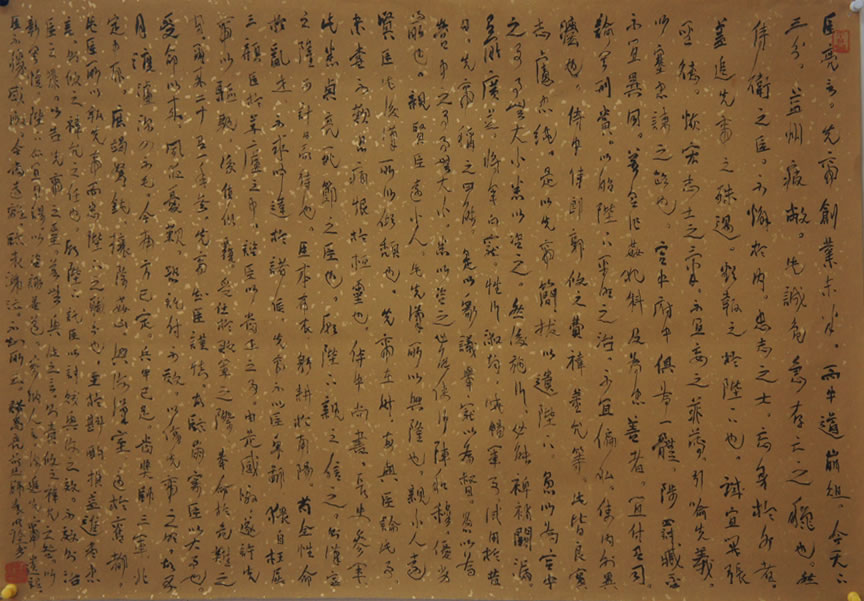 臣亮言。先帝創業未半。而中道崩殂。今天下
三分。益州疲敝。此誠危急存亡之秋也。然
侍衛之臣。不懈於內。忠志之士忘身於外者。
蓋追先帝之殊遇。欲報之於陛下也。誠宜開張
聖德。恢宏志士之氣。不宜妄自菲薄。引喻失義。
以塞忠諫之路也。宮中府中俱為一體。陟罰臧否
不宜異同。若有作姦犯科及為忠善者。宜付有司
論其刑賞。以昭陛下平明之治。不宜偏私。使內外異
法也。侍中侍郎郭攸之費褘董允等。此皆良實
志慮忠純。是以先帝簡拔以遺陛下。愚以為宮中
之事事無大小悉以咨之。然後施行。必能裨補闕漏。
有所廣益。將軍向寵。性行淑均。曉暢軍事試用於昔
日。先帝稱之曰能。是以眾議舉寵以為督。愚以為
營中之事事無大小。悉以咨之。必能使行陣和穆。優劣
得所也。親賢臣遠小人。此先漢所以興隆也。親小人遠
賢臣此後漢所以傾頹也。先帝在時。每與臣論此事。
未嘗不歎息痛恨於桓靈也。侍中尚書。長史參軍
此悉貞亮死節之臣也。願陛下親之信之。則漢室
之隆可計日而待也。臣本布衣。躬耕於南陽。苟全性命
於亂世。不求聞達於諸侯。先帝不以臣卑鄙。猥自枉屈
三顧臣於草廬之中。諮臣以當世之事。由是感激。遂許先
帝以驅馳。後值傾覆。受任於敗軍之際。奉命於危難之
間爾來二十有一年矣。先帝知臣謹慎。故臨崩寄臣以大事也
受命以來。夙夜憂歎。恐託付不效。以傷先帝之明。故五
月渡瀘深入不毛。今南方已定。兵甲已足。當獎帥三軍北
定中原。庶竭駑鈍。攘除姦凶。興復漢室。還於舊都。
此臣所以報先帝而忠陛下之職分也。至於斟酌損益。進盡忠
言。則攸之褘允之任也。願陛下託臣以討賊興復之效。不效則治
臣之罪。以告先帝之靈。若無興德之言。則責攸之褘允之咎以
彰其慢。陛下亦宜自謀。以諮諏善道。察納雅言。深追先帝遺詔
臣不勝感激。今當遠離。臨表涕泣。不知所云。諸葛亮前出師表